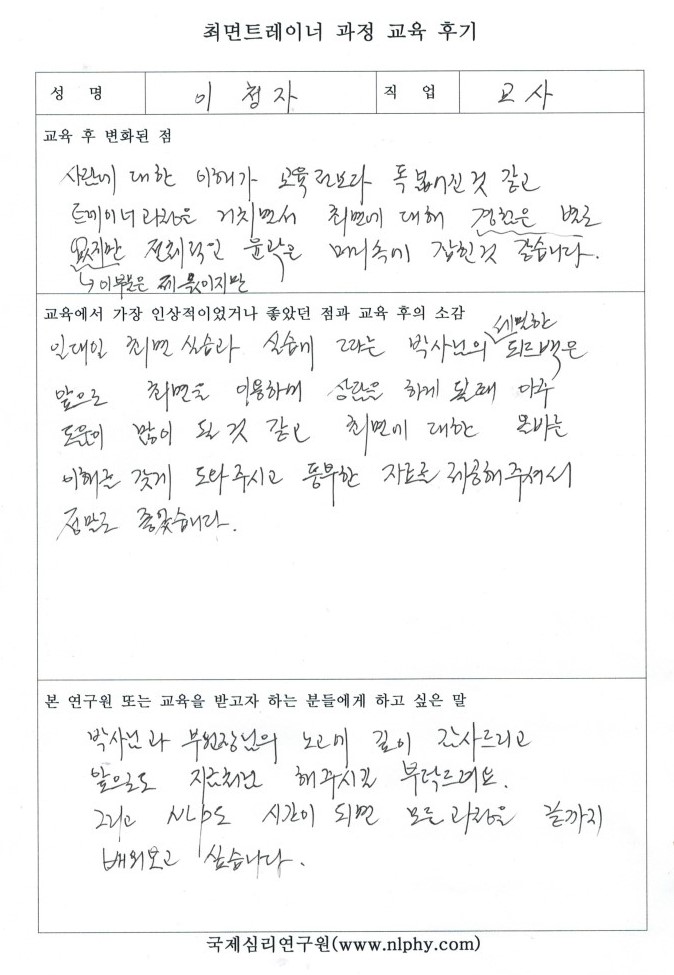 최면트레이너 과정 교육 후기
성 명 이 청 자 직 업 교 사
교육 후 변화된 점
사람에 대한 이해가 교육 전보다 폭 넓어진 것 같고
트레이너과정을 거치면서 최면에 대해 경험은 별로
없지만 전체적인 윤곽은 머리속에 잡힌것 같습니다.
↳이부분은 제 몫이지만
교육에서 가장 인상적이었거나 좋았던 점과 교육 후의 소감
일대일 최면 실습과 실습에 따른 박사님의 세밀한 피드백은
앞으로 최면을 이용하여 상담을 하게 될때 아주
도움이 많이 될 것 같고 최면에 대한 올바른
이해를 갖게 도와주시고 풍부한 자료를 제공해주셔서
정말로 좋았습니다.
본 연구원 또는 교육을 받고자 하는 분들에게 하고 싶은 말
박사님과 부원장님의 노고에 깊이 감사드리고
앞으로도 지금처럼 해주시길 부탁드려요.
그리고 NLP도 시간이 되면 모든 과정을 끝까지
배워보고 싶습니다.
국제심리연구원(www.nlphy.com)